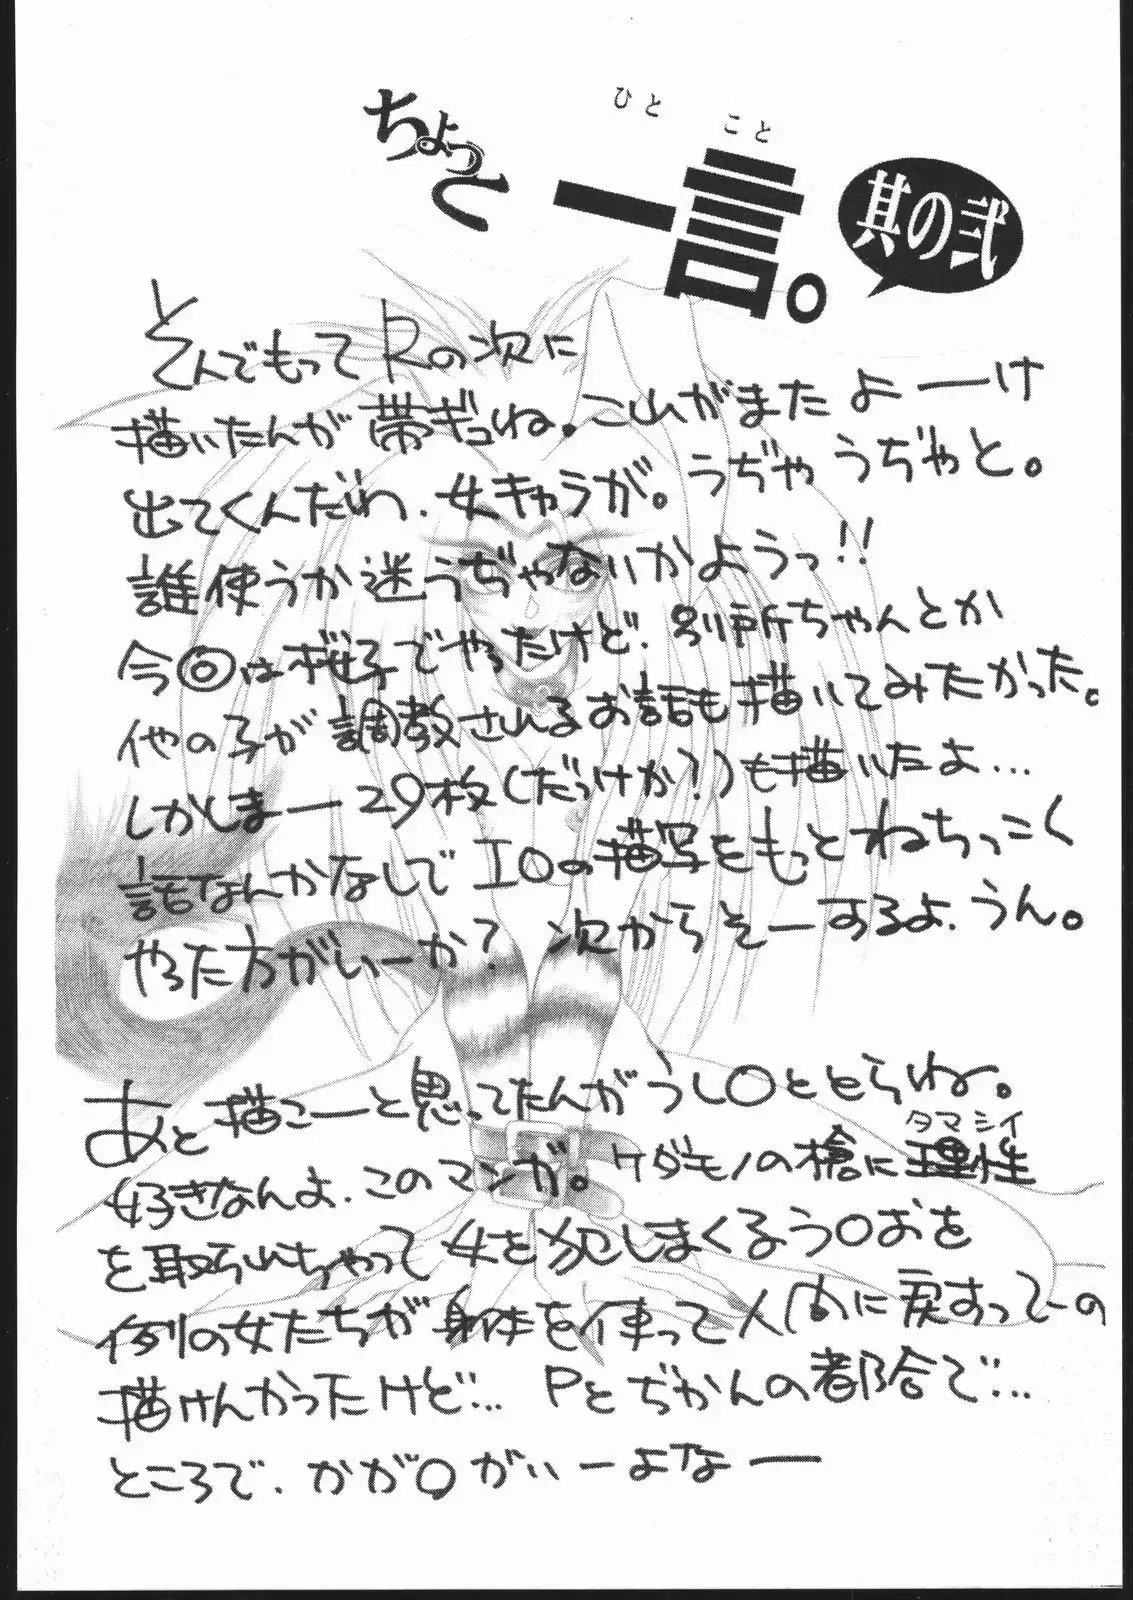 ちょっと
ひとこと
一言。
其の弐
とんでもって Rの次に
描いたんが帯ギュね。こいがまた よーーけ
出てくんだわ、女キャラが。うぢゃうぢゃと。
誰使うか迷うぢゃないかようっ!!
今回は桜子でやったけど、別所ちゃんとか
他の子が調教されるお話も描いてみたかった。
しかしまー29枚(だっけか?)も描いたよ…
話なんかなしでIOの描写をもっとねちっこく
やった方がいーか? 次からそーするよ、うん。
あと描こーーと思ってたんがうし〇ととらね。
好きなんよ、このマンガ。ケダモノの槍に理性
タマシイ
を取られちゃって女を犯しまくるう〇おを
例の女たちが身体を使って人間に戻すってーの
描けんかったけど… Pとぢかんの都合で…
ところで、かが〇がいーよなー